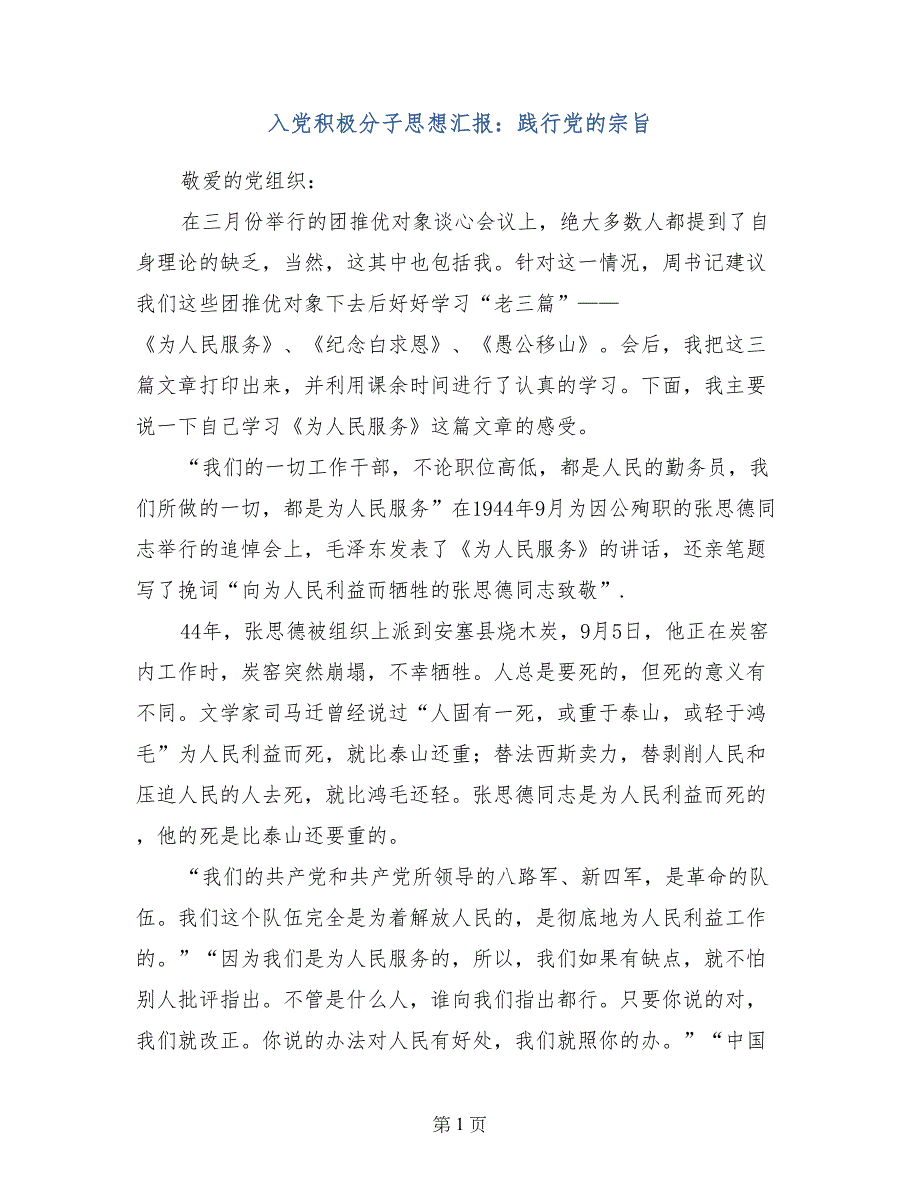 入党积极分子思想汇报：践行党的宗旨
敬爱的党组织：
在三月份举行的团推优对象谈心会议上，绝大多数人都提到了自
身理论的缺乏，当然，这其中也包括我。针对这一情况，周书记建议
我们这些团推优对象下去后好好学习“老三篇”——
《为人民服务》、《纪念白求恩》、《愚公移山》。会后，我把这三
篇文章打印出来，并利用课余时间进行了认真的学习。下面，我主要
说一下自己学习《为人民服务》这篇文章的感受。
“我们的一切工作干部，不论职位高低，都是人民的勤务员，我
们所做的一切，都是为人民服务”在1944年9月为因公殉职的张思德同
志举行的追悼会上，毛泽东发表了《为人民服务》的讲话，还亲笔题
写了挽词“向为人民利益而牺牲的张思德同志致敬”.
44年，张思德被组织上派到安塞县烧木炭，9月5日，他正在炭窑
内工作时，炭窑突然崩塌，不幸牺牲。人总是要死的，但死的意义有
不同。文学家司马迁曾经说过“人固有一死，或重于泰山，或轻于鸿
毛”为人民利益而死，就比泰山还重；替法西斯卖力，替剥削人民和
压迫人民的人去死，就比鸿毛还轻。张思德同志是为人民利益而死的
，他的死是比泰山还要重的。
“我们的共产党和共产党所领导的八路军、新四军，是革命的队
伍。我们这个队伍完全是为着解放人民的，是彻底地为人民利益工作
的。”“因为我们是为人民服务的，所以，我们如果有缺点，就不怕
别人批评指出。不管是什么人，谁向我们指出都行。只要你说的对，
我们就改正。你说的办法对人民有好处，我们就照你的办。”“中国
第 1 页